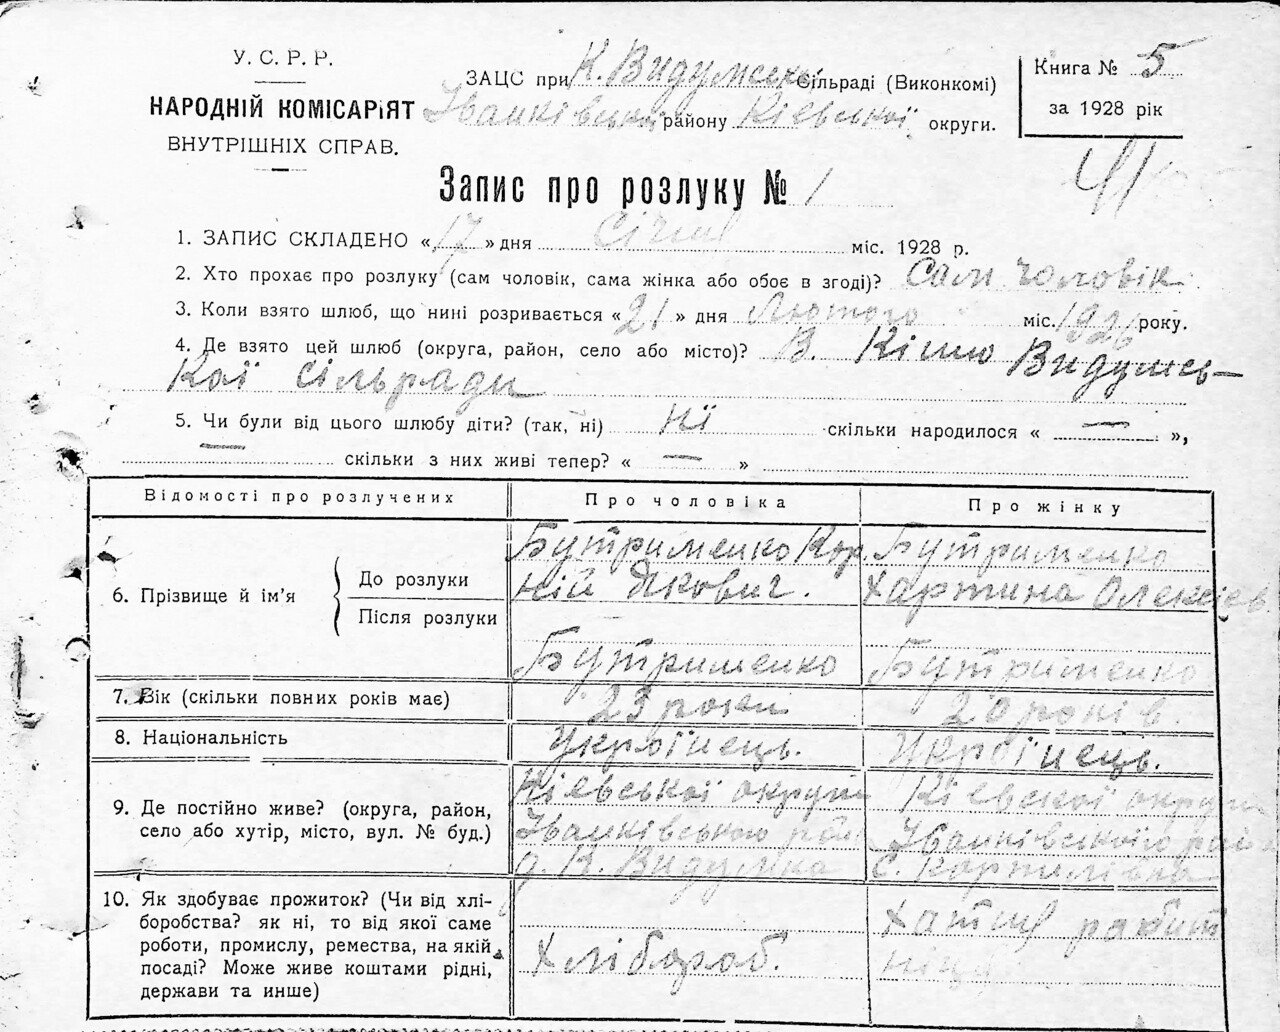 У. С. Р. Р.
НАРОДНІЙ КОМІСАРІЯТ
ВНУТРІШНІХ СПРАВ.
ЗАЦС при К. Видумській Сільраді (Виконкомі)
Іванківському району Кіевської округи.
Книга № 5
за 1928 рік
41
Запис про розлуку № 1
1. ЗАПИС СКЛАДЕНО « 17 » дня Січня міс. 1928 р.
2. Хто прохає про розлуку (сам чоловік, сама жінка або обоє в згоді)? Сам чоловік
3. Коли взято шлюб, що нині розривається « 21 » дня Лютого міс. 1926 року.
4. Де взято цей шлюб (округа, район, село або місто)? В. Видумсь-
кої сільради
5. Чи були від цього шлюбу діти? (так, ні) ні скільки народилося « — »,
— скільки з них живі тепер? « — »
Відомості про розлучених Про чоловіка Про жінку
6. Прізвище й ім'я
До розлуки
Після розлуки
Бутрименко Кор
ній Якович.
Бутрименко
Бутрименко
Хартина Олексіев
Бутрименко
7. Вік (скільки повних років має) 23 роки 20 років.
8. Національність Україїнець. Україїнець.
9. Де постійно живе? (округа, район,
село або хутір, місто, вул. № буд.)
Кіевської округи
Іванківського рай
д. К. Видумка
Кіевскої округи
Іванківського рай
с.
10. Як здобуває прожиток? (Чи від хлі-
боробства? як ні, то від якої саме
роботи, промислу, ремества, на якій
посаді? Може живе коштами рідні,
держави та инше)
Хлібороб.
Хатня работ
ніця